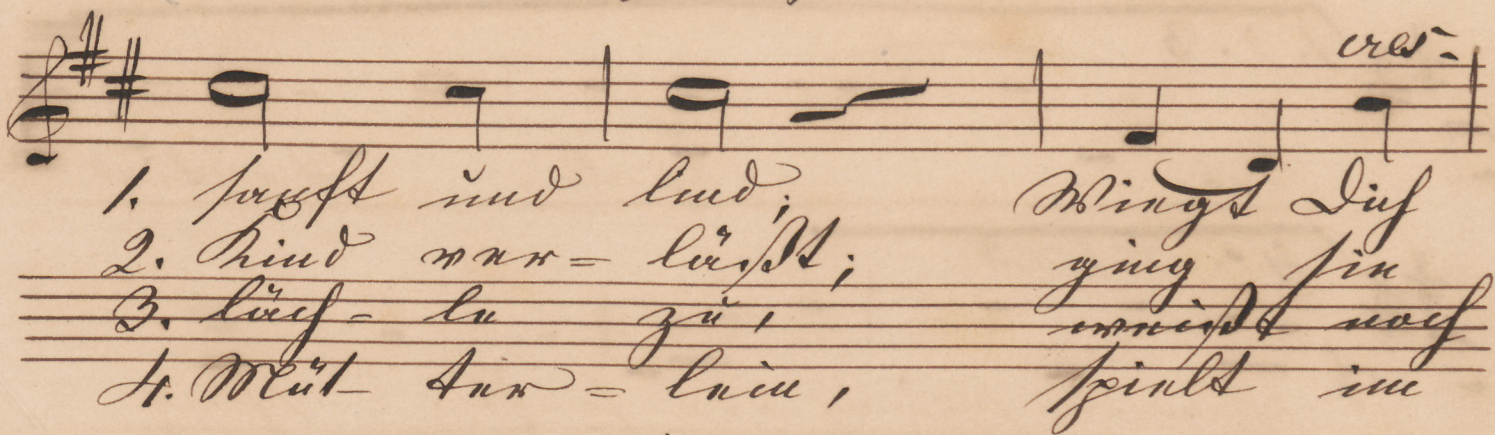 cres:
1. sanft und lind; Wiegt Dich
2. Kind ver= läßt; ging sie
3. läch- le zu, weißt noch
4. Müt- ter = lein, spielt im